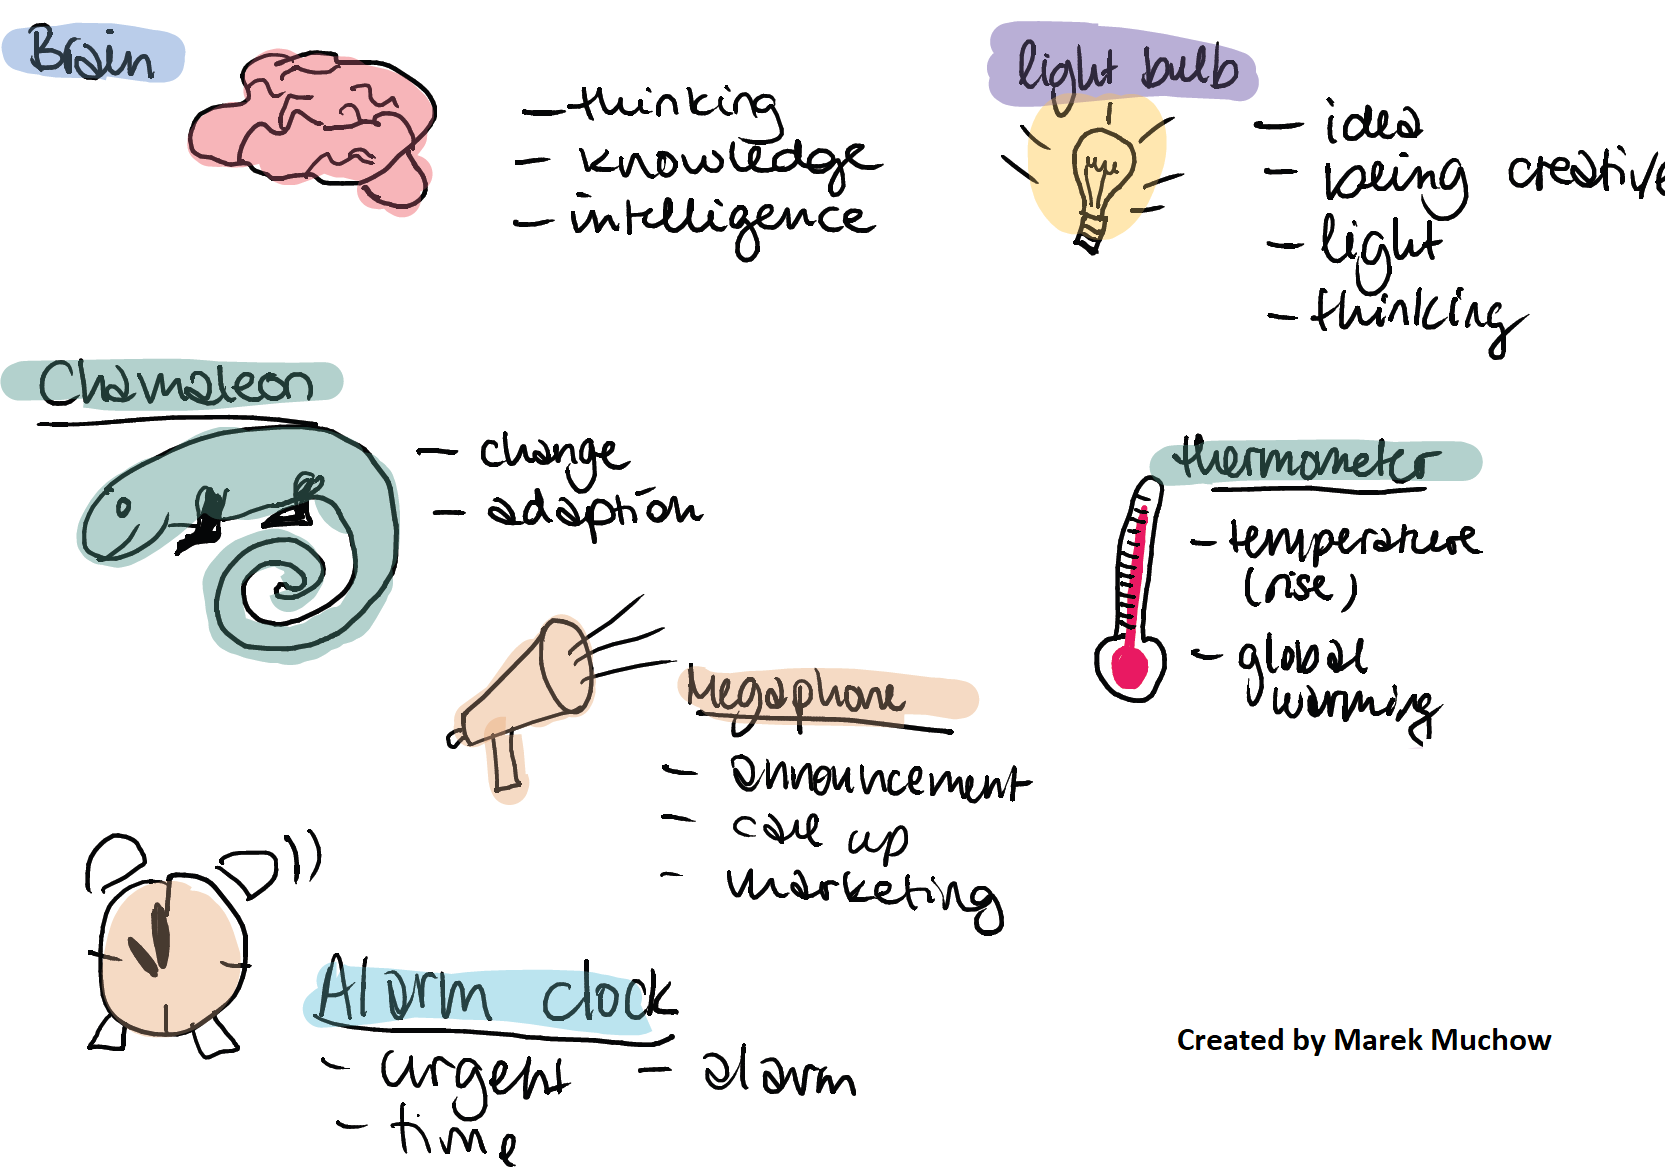 Brain
– thinking
– knowledge
– intelligence
light bulb
– idea
– being creative
– light
– thinking
Chamaleon
– change
– adaption
thermometer
– temperature
(rise)
– global
warming
Megaphone
– announcement
– call up
– marketing
Alarm clock
– urgent – alarm
– time
Created by Marek Muchow